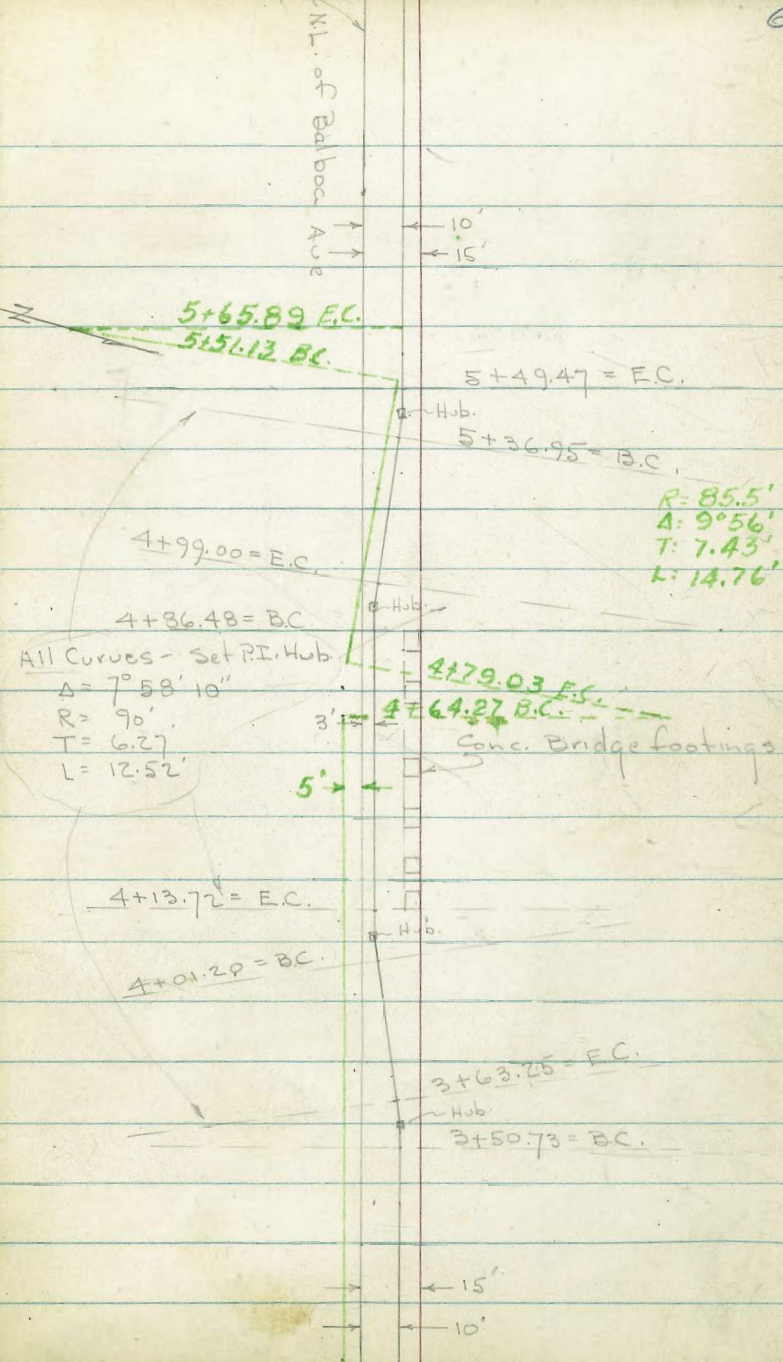 6
N.L. of Balboa Ave
10'
15'
5+65.89 E.C.
5+51.13 B.C.
5+49.47 = E.C.
Hub.
5+36.95 = B.C.
R= 85.5'
Δ: 9°56'
T: 7.43'
L: 14.76'
4+99.00 = E.C.
Hub.
4+86.48 = B.C
All Curves - Set P.I. Hub
Δ = 7° 58' 10"
R = 90'
T = 6.27
L = 12.52'
4+79.03 E.C.
4+64.27 B.C.
3'
Conc. Bridge footings
5'
4+13.72 = E.C.
Hub.
4+01.20 = B.C.
3+63.25 = E.C.
Hub
3+50.73 = B.C.
15'
10'